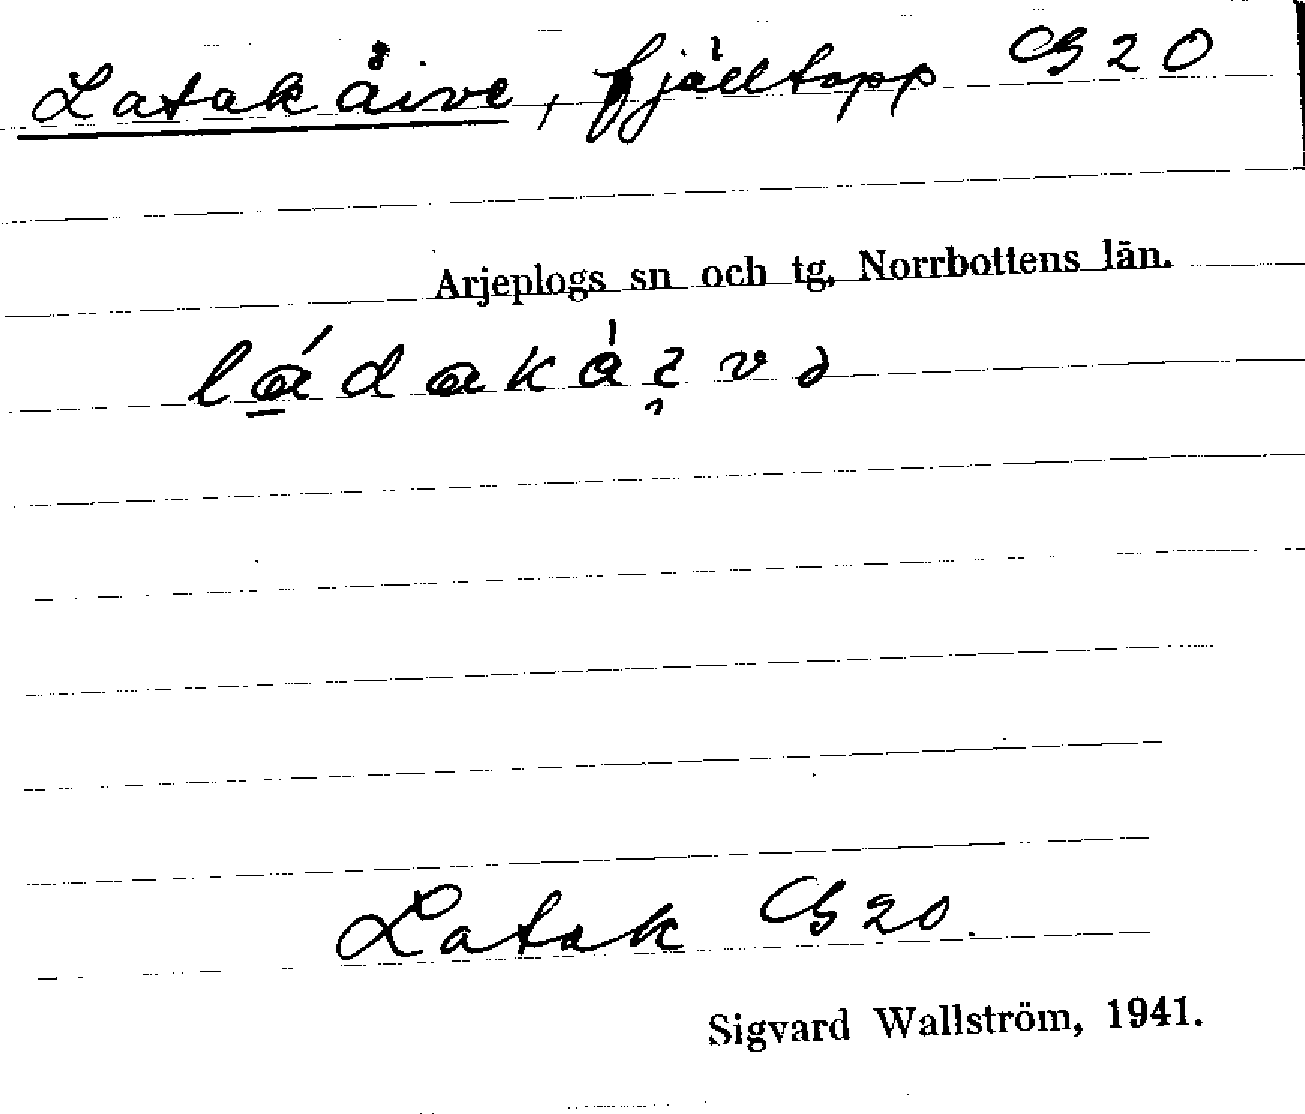 Latakåive, fjälltopp G20
Arjeplogs sn och tg, Norrbottens län.
Latak G20.
Sigvard Wallström, 1941.